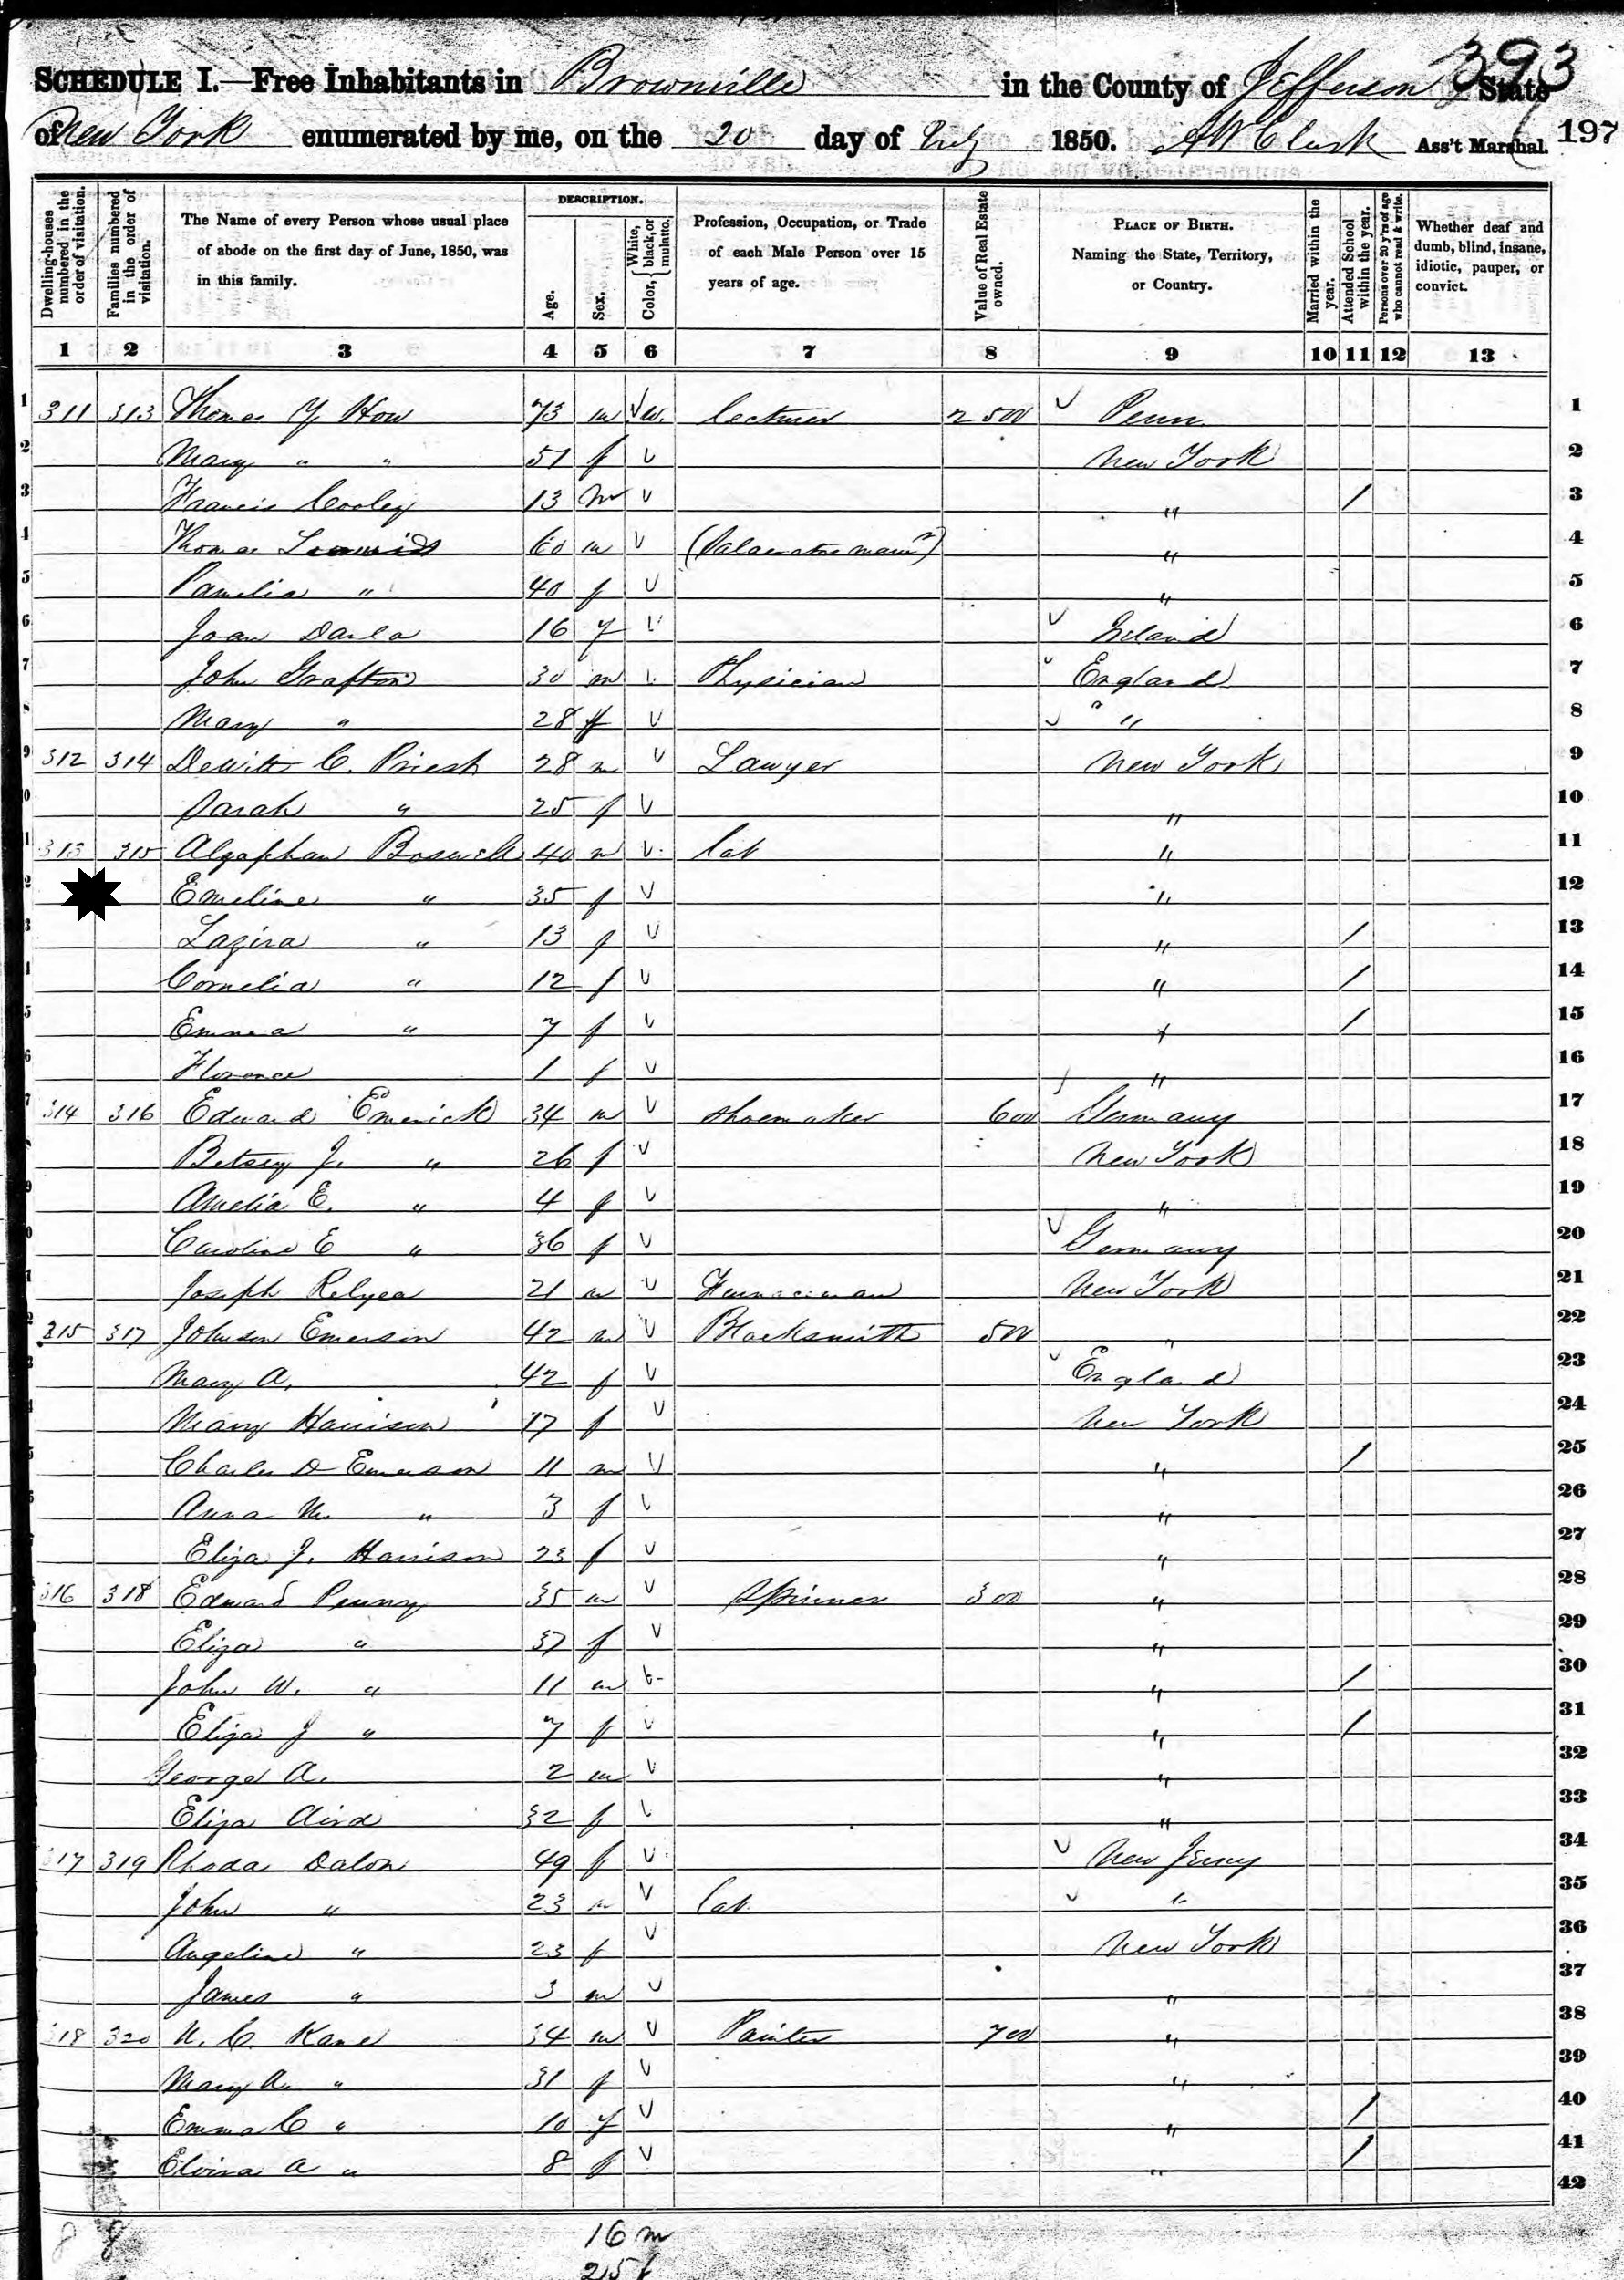 393
SCHEDULE I.—Free Inhabitants in Brownville in the County of Jefferson State
of New York enumerated by me, on the 20 day of July 1850. A W Clark Ass't Marshal. 197
Dwelling-houses numbered in the order of visitation.
Families numbered in the order of visitation.
The Name of every Person whose usual place of abode on the first day of June, 1850, was in this family.
DESCRIPTION.
Age.
Sex.
Color, White, black, or mulatto.
Profession, Occupation, or Trade of each Male Person over 15 years of age.
Value of Real Estate owned.
PLACE OF BIRTH. Naming the State, Territory, or Country.
Married within the year.
Attended School within the year.
Persons over 20 y'rs of age who cannot read & write.
Whether deaf and dumb, blind, insane, idiotic, pauper, or convict.
1 2 3 4 5 6 7 8 9 10 11 12 13
1 311 313 Thomas Y How 73 m w. lecturer 2500 Penn 1
2 Mary " " 51 f New York 2
3 Francis Cooley 13 m " / 3
Thomas 60 m " 4
5 Pamelia " 40 f " 5
6 Joan 16 f Ireland 6
7 John Grafton 30 m Physician England 7
8 Mary " 28 f " " 8
9 312 314 Dewitt C. Priest 28 m Lawyer New York 9
Sarah " 25 f " 10
313 315 Boswell 40 m lab " 11
Emeline " 35 f " 12
Lazira " 13 f " / 13
Cornelia " 12 f " / 14
Emma " 7 f / 15
Florence 1 f " 16
314 316 Edward Emerick 34 m Shoemaker 600 Germany 17
Betsey J. " 26 f New York 18
Amelia E. " 4 f " 19
Caroline E " 36 f Germany 20
Joseph Relyea 21 m New York 21
315 317 Johnson Emerson 42 m Blacksmith 500 " 22
Mary A. 42 f England 23
Mary Harrison 17 f New York 24
Charles D Emerson 11 m " / 25
Anna M. " 3 f " 26
Eliza J. Harrison 23 f " 27
316 318 Edward Penny 35 m Spinner 300 " 28
Eliza " 37 f " 29
John W. " 11 m " / 30
Eliza J " 7 f " / 31
George A. 2 m " 32
Eliza Aird 32 f " 33
317 319 Rhoda Dalon 49 f New Jersey 34
John " 23 m lab. " 35
Angeline " 23 f New York 36
James " 3 m " 37
318 320 N. C. Kane 34 m Painter 700 " 38
Mary A. " 31 f " 39
Emma C " 10 f " / 40
Elvira A " 8 f " / 41
42
8 8 16 m
25 f